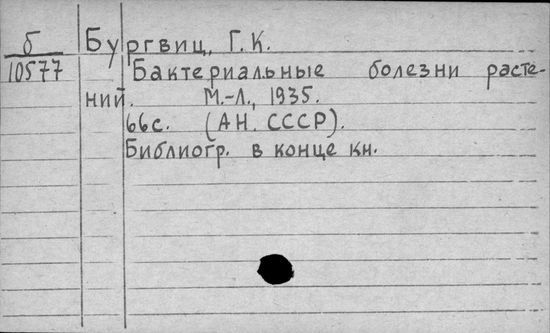 б Бургвиц, Г. К.
10577 Бактериальные болезни расте-
ний. М.-Л., 1935.
66с. (АН. СССР).
Библиогр. в конце кн.